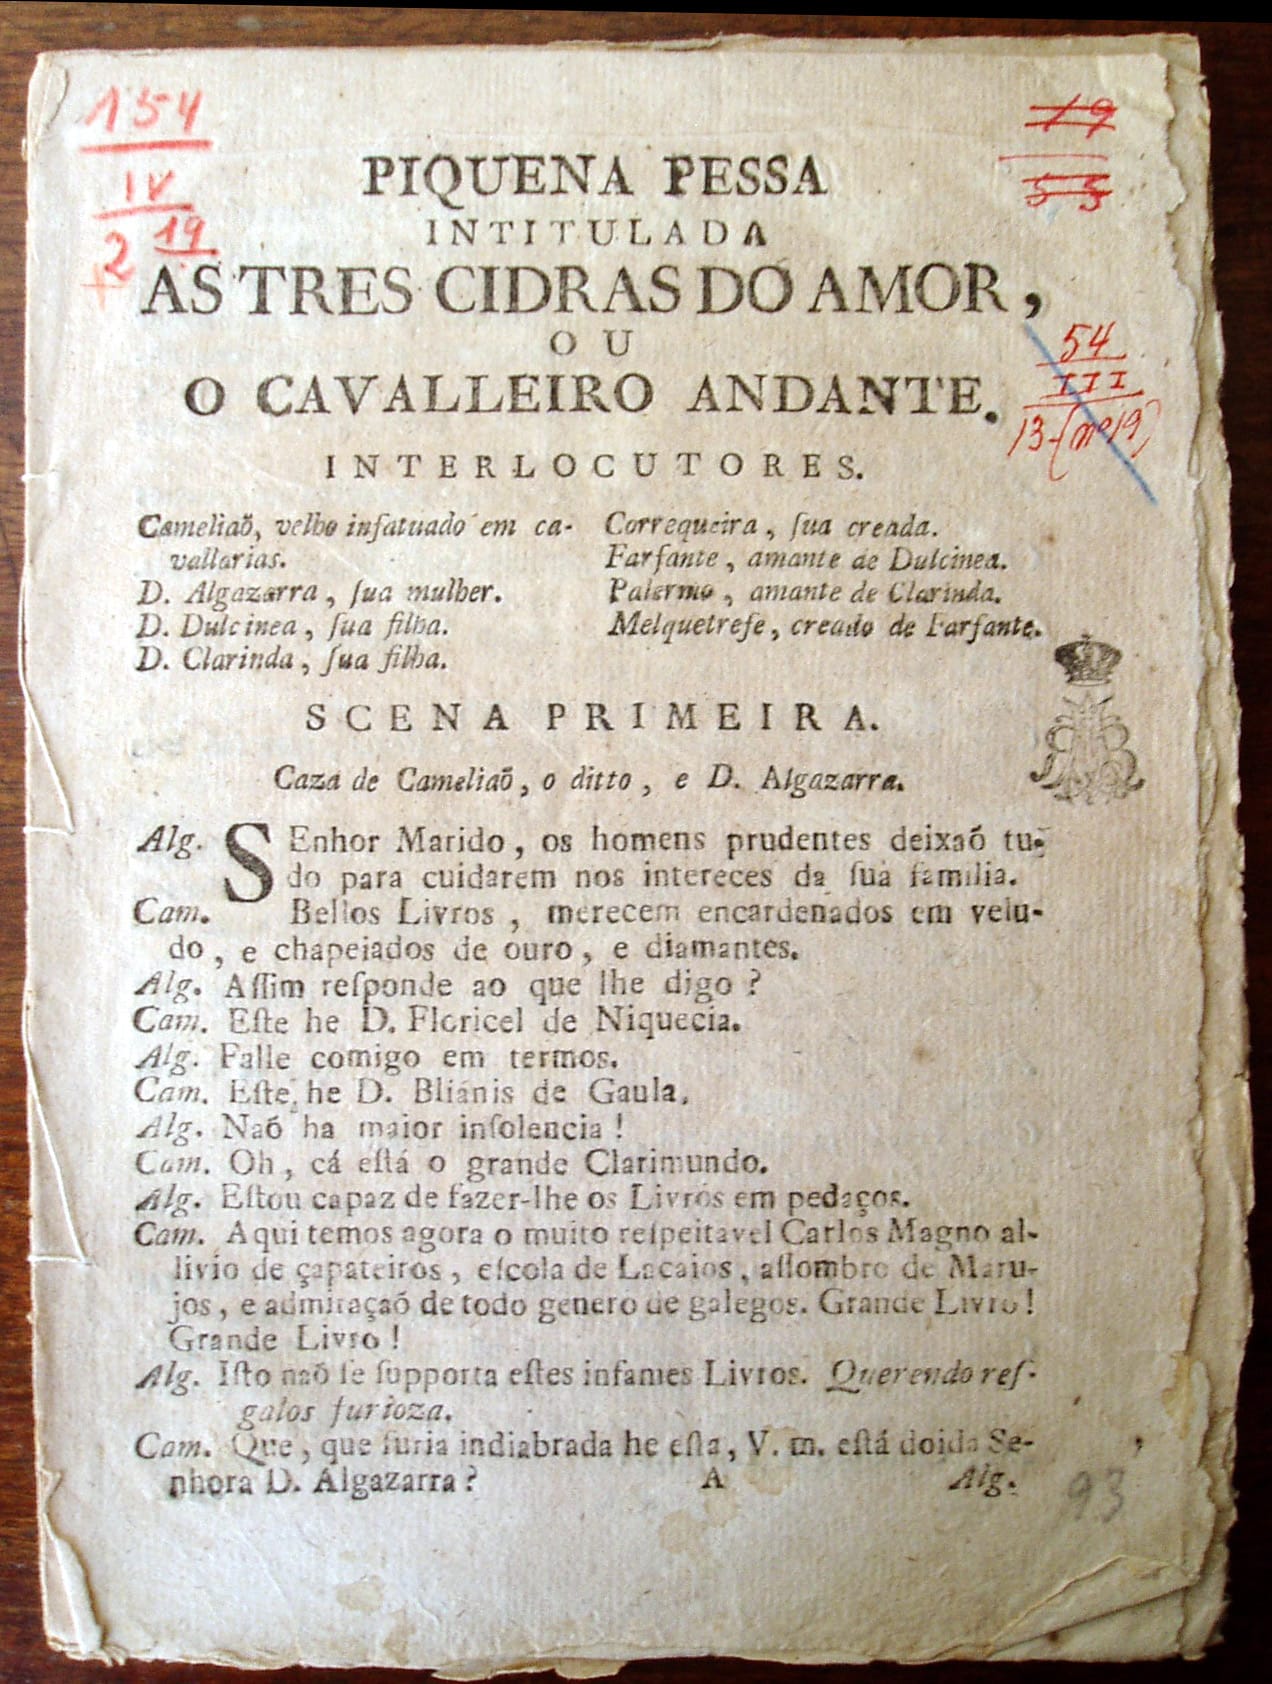 154
IV
19
2
19
53
PIQUENA PESSA
INTITULADA
AS TRES CIDRAS DO AMOR,
OU
O CAVALLEIRO ANDANTE.
54
III
13-(nº19)
INTERLOCUTORES.
Cameliaõ, velho infatuado em ca-
vallarias.
D. Algazarra, ſua mulher.
D. Dulcinea, ſua filha.
D. Clarinda, ſua filha.
Correqueira, ſua creada.
Farfante, amante de Dulcinea.
Palermo, amante de Clarinda.
Melquetrefe, creado de Farfante.
SCENA PRIMEIRA.
Caza de Cameliaõ, o ditto, e D. Algazarra.
Alg. SEnhor Marido, os homens prudentes deixaõ tu-
do para cuidarem nos intereces da ſua familia.
Cam. Bellos Livros, merecem encardenados em velu-
do, e chapeiados de ouro, e diamantes.
Alg. Aſſim reſponde ao que lhe digo?
Cam. Eſte he D. Floricel de Niquecia.
Alg. Falle comigo em termos.
Cam. Eſte he D. Blianis de Gaula.
Alg. Naõ ha maior inſolencia!
Cam. Oh, cá eſtá o grande Clarimundo.
Alg. Eſtou capaz de fazer-lhe os Livros em pedaços.
Cam. Aqui temos agora o muito reſpeitavel Carlos Magno al-
livio de çapateiros, eſcola de Lacaios, aſſombro de Maru-
jos, e admiraçaõ de todo genero de galegos. Grande Livro!
Grande Livro!
Alg. Iſto naõ ſe ſupporta eſtes infames Livros. Querendo reſ-
galos furioza.
Cam. Que, que furia indiabrada he eſta, V. m. eſtá doida Se-
nhora D. Algazarra?
A
Alg.
93